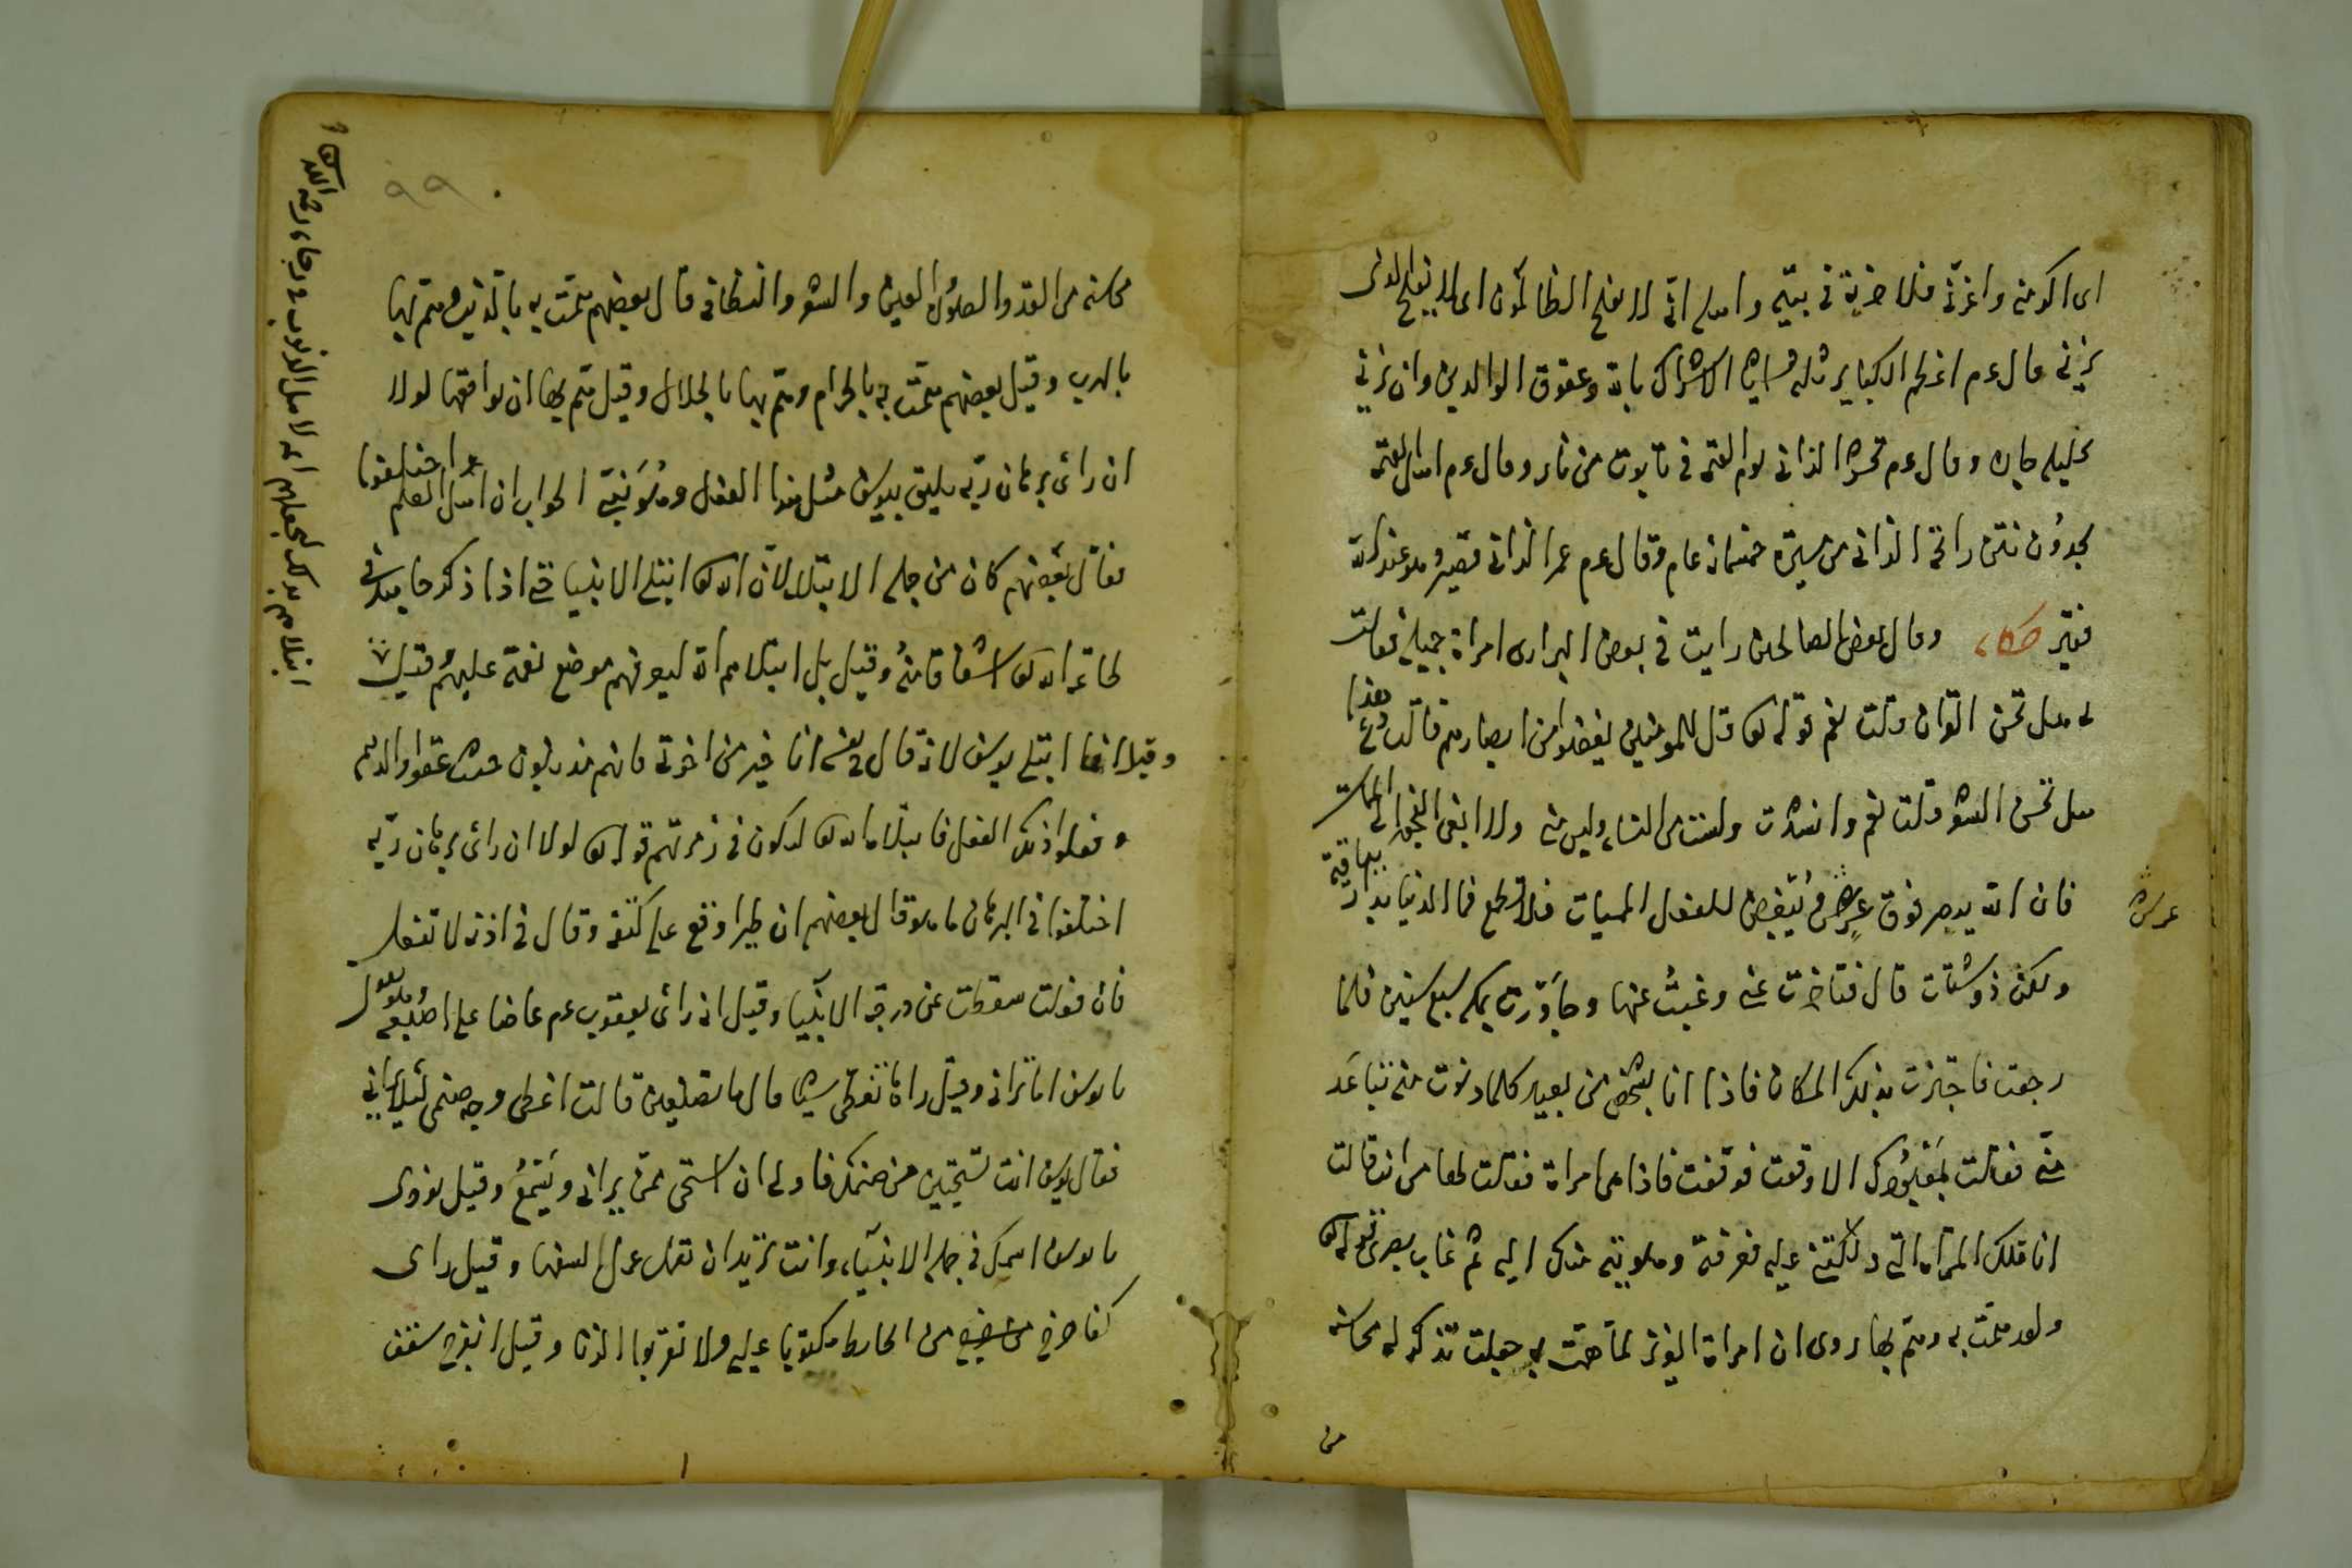 اى اكرمنى واعزنى فلا اخونه فى بيته واعلم انه لا يفلح الظالمون اى لا يفلح الذى
يزنى قال عم اعظم الكبائر ثلثه الاشراك بالله وعقوق الوالدين وان تزنى
بحليلة جارك وقال عم يحشر الزانى يوم القيمة فى تابوت من نار وقال عم اهل القيمة
يجدون نتن رائحة الزانى من مسيرة خمسمائة عام وقال عم عمر الزانى قصير وهو عند الله
فقير حكاية وقال بعض الصالحين رايت فى بعض البرارى امراة جميلة فقالت
لى هل تحسن القران وقلت نعم قوله تعالى قل للمؤمنين يغضوا من ابصارهم قالت دع هذا
هل تحسن الشعر وقلت نعم وانشدت ولست من النساء وليس منى ولا ابغى الفجور الى الممات
فان الله يبصر فوق عرش ويبغض للفعل السيات فلا تطمع فما الدنيا بدار بباقية
ولكن ذو شتات قال فتاخرت عنى وغبت عنها وجاورت بمكة سبع سنين فلما
رجعت فاجتزت بذلك المكان فاذا انا بشخص من بعيد كلما دنوت منه تباعد
منى فقالت بمعبودك الا وقفت فوقفت فاذا هى امراة فقالت لها من انت قالت
انا تلك المراة التى دللتنى عليه فعرفته وهويته عندك اليه ثم غاب بصرى قوله تعالى
ولقد همت به وهم بها روى ان امراة العزيز لما همت به جعلت تذكر له محاسنه
من
عرش
٩٩
محاسنه من القد والصلول والعين والشعر والنطاق قال بعضهم همت به بالتذنيب وهم بها
بالهرب وقيل بعضهم همت به بالحرام وهم بها بالحلال وقيل هم بها ان يوافقها لولا
ان راى برهان ربه يليق بيوسف مثل هذا الفعل وهو نبى الجواب ان اهل العلم واختلفوا
فقال بعضهم كان من جملة الابتلاء لان الله تعالى ابتلى الانبيا حتى اذا ذكرها يبقى فى
لحاعة الله تعالى اشفاقا منه وقيل بل ابتلاهم الله ليعرفهم موضع نعمته عليهم وقيل
وقيل انما ابتلى يوسف لانه قال فى نفسه انا خير من اخوتى فانهم مذنبون حيث عقوا والدهم
وفعلوا ذلك الفعل فابتلاه الله تعالى ليكون فى زمرتهم قوله تعالى لولا ان راى برهان ربه
اختلفوا فى البرهان ما هو قال بعضهم ان طيرا وقع على كتفه وقال فى اذنه لا تفعل
فان فعلت سقطت عن درجة الانبيا وقيل انه راى يعقوب عم عاضا على اصبعه وهو يقول
يا يوسف اما ترانى وقيل راها تغطى شيئا قال ما تصنعين قالت اغطى وجه صنمى لئلا يرانى
فقال يوسف انت تستحيين من صنمك فاولى ان استحى ممن يرانى ويسمع وقيل نودى
يا يوسف اسمك فى جملة الانبياء وانت تريد ان تعمل عمل السفها وقيل راى
كفا خرج من الحايط مكتوبا عليه ولا تقربوا الزنا وقيل انفرج سقف
ابتلاهم بذلك ليجعلهم ائمة لاهل الذنوب فى رجاء رحمة الله تعالى